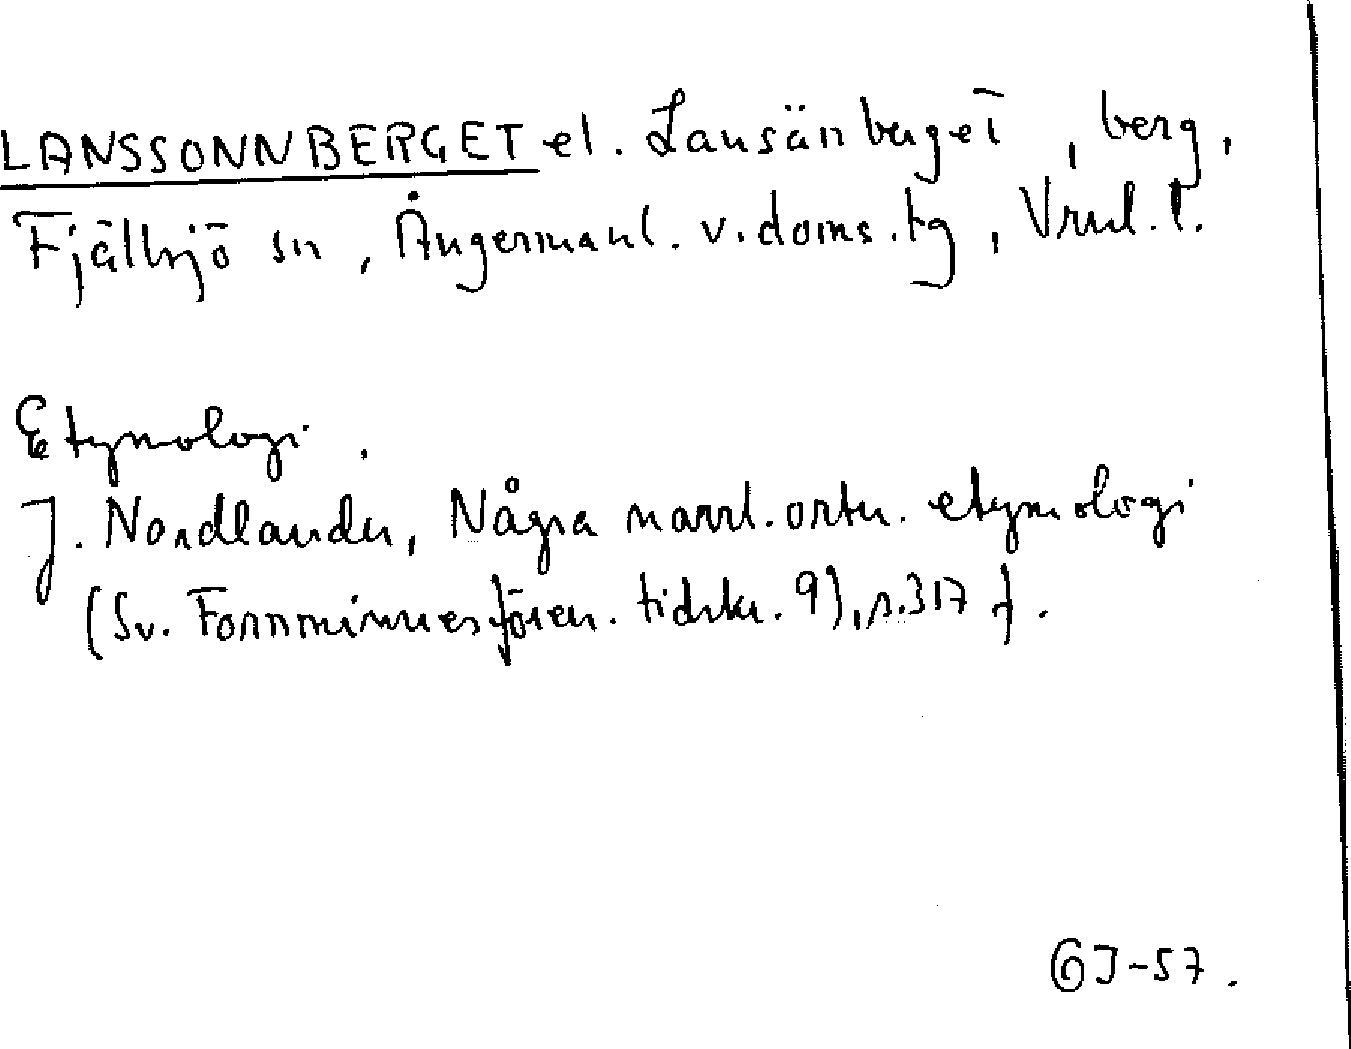 LANSSONNBERGET el. Lansänberget, berg,
Fjällsjö sn, Ångermanl. v. doms. tg, Vrnl. l.
Etymologi.
J. Nordlander, Några norrl. ortn. etymologi
(Sv. Fornminnesfören. tidskr. 9), s. 317 f.
GJ-57.